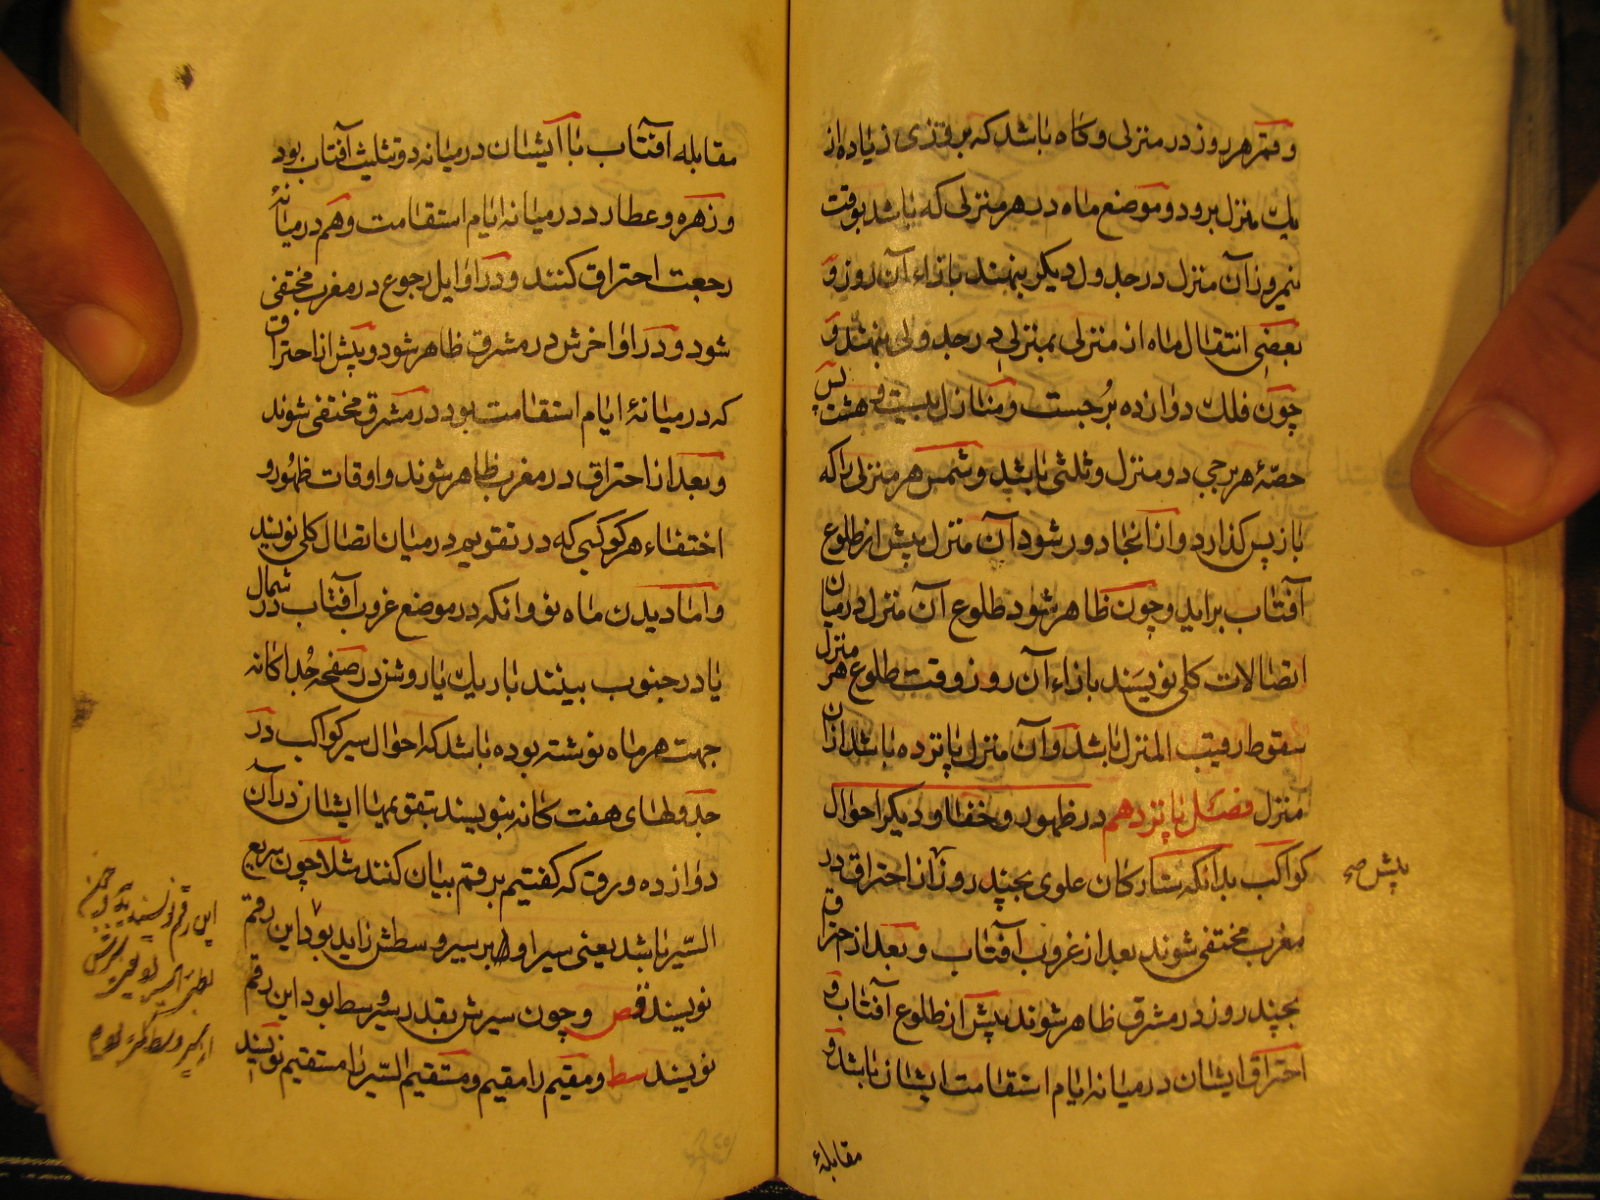 و قمر هر روز در منزلی و کاه باشد که بروزی زیاده از
یك منزل برود و موضع ماه در هر منزلی که باشد بوقت
نیمروز آن منزل در جدول دیکر بنهند بازاء آن روز و
بعضی انتقال ماه از منزلی بمنزلی در جدولی بنهند و
چون فلك دوازده برجست و منازل بیست و هشت پس
حصّهٔ هر برجی دو منزل و ثلثی باشد و شمس هر منزلی را که
باز پس کذارد و از انجا دور شود آن منزل پیش از طلوع
آفتاب براید و چون ظاهر شود طلوع آن منزل در میان
اتصالات کلی نویسند بازاء آن روز وقت طلوع هر منزل
سقوط رقیب المنزل باشد و آن منزل پانزده باشد از آن
منزل فصل پانزدهم در ظهور و خفا و دیکر احوال
کواکب بدانکه ستارکان علوی بچند روز از احتراق در
پیش صح
مغرب مختفی شوند بعد از غروب آفتاب و بعد از احتراق
بچند روز در مشرق ظاهر شوند پیش از طلوع آفتاب و
احتراق ایشان در میانه ایام استقامت ایشان باشد و
مقابلهٔ
مقابله آفتاب با ایشان در میانه دو تثلیث آفتاب بود
و زهره و عطارد در میانه ایام استقامت و هم در میانهٔ
رجعت احتراق کنند و در اوایل رجوع در مغرب مختفی
شود و در اواخرش در مشرق ظاهر شود و پیش از احتراق
که در میانهٔ ایام استقامت بود در مشرق مختفی شوند
و بعد از احتراق در مغرب ظاهر شوند و اوقات ظهور و
اختفاء هر کوکبی که در تقویم در میان اتصال کلی نویسند
و اما دیدن ماه نو و انکه در موضع غروب آفتاب در شمال
یا در جنوب بینند باریك یا روشن در صفحه جداکانه
جهت هر ماه نوشته بوده باشد که احوال سیر کواکب در
جدولهای هفت کانه بنویسند بتقویمها ایشان در آن
دوازده ورق که کفتیم برقم بیان کنند مثلا چون سریع
السّیر باشد یعنی سیر او بر سیر وسطش زاید بود این رقم
نویسند و چون سیرش بقدر سیر وسط بود این رقم
نویسند سط و مقیم را مقیم و مستقیم السّیر را مستقیم نویسند